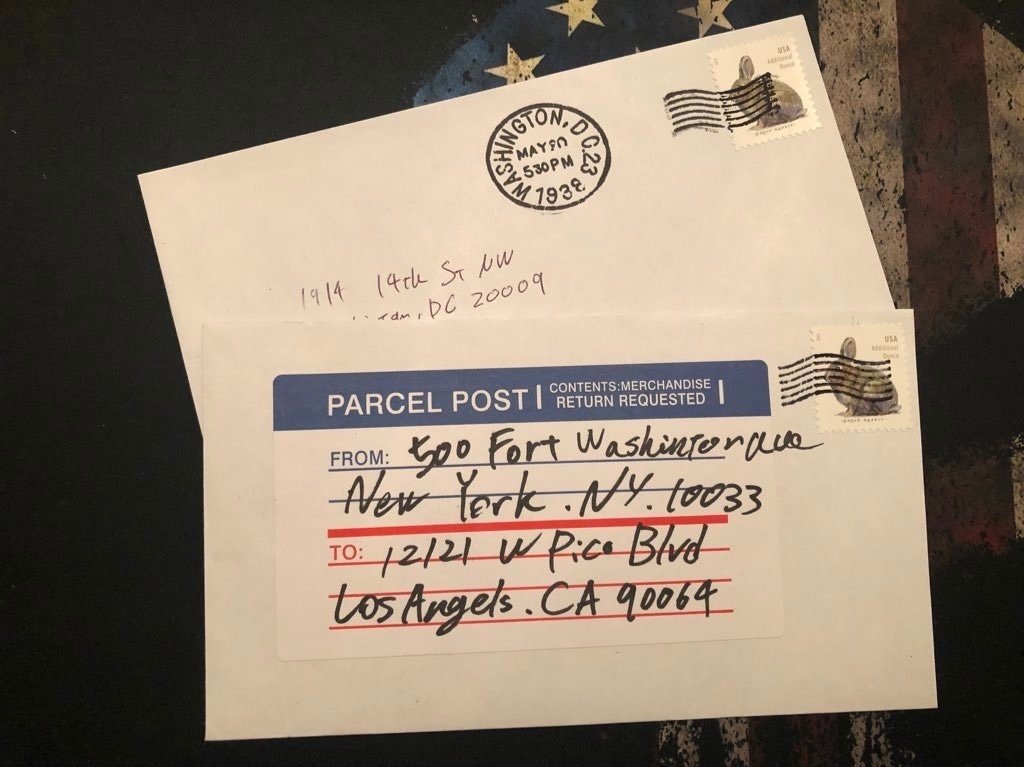 USA
Additional
Ounce
WASHINGTON, D.C. 23
MAY 20
530 PM
1938
1914 14th St NW
DC 20009
USA
Additional
Ounce
PARCEL POST
CONTENTS:MERCHANDISE
RETURN REQUESTED
FROM: 500 Fort Washington Ave
New York. NY. 10033
TO: 12121 W Pico Blvd
Los Angels. CA 90064